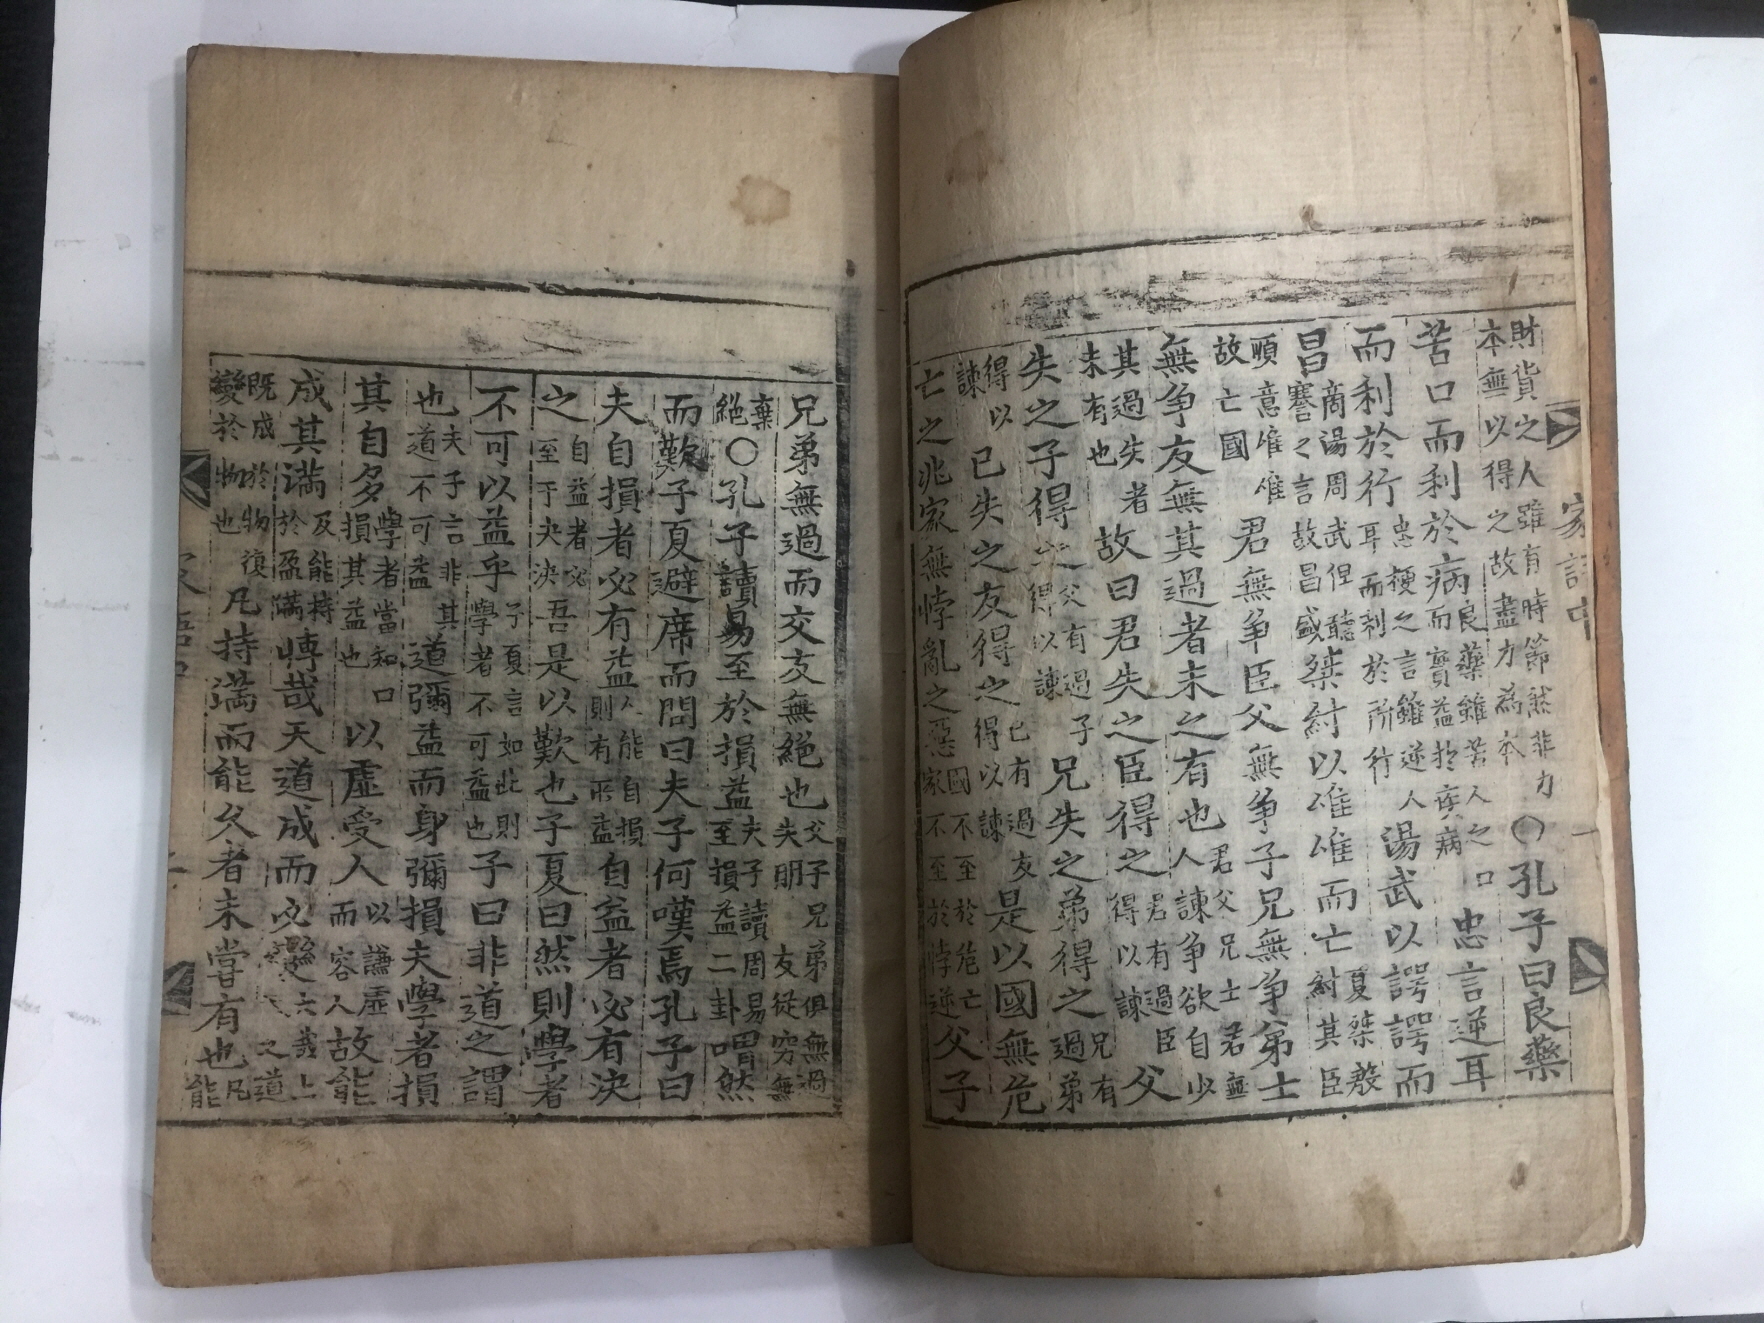 財貨之人雖有時節然非力
本無以得之故盡力為本
○孔子曰良藥
苦口而利於病
良藥雖苦人之口
而實益於疾病
忠言逆耳
而利於行
忠梗之言雖逆人
耳而利於所行
湯武以諤諤而
昌
商湯周武俚聽
謇之言故昌盛
桀紂以唯唯而亡
夏桀殷
紂其臣
順意唯唯
故亡國
君無爭臣父無爭子兄無爭弟士
無爭友無其過者未之有也
君父兄士君無
人諫爭欲自少
其過失者
未有也
故曰君失之臣得之
君有過臣
得以諫
父
失之子得之
父有過子
得以諫
兄失之弟得之
兄有
過弟
得以
諫
己失之友得之
己有過友
得以諫
是以國無危
亡之兆家無悖亂之惡
國不至於危亡
家不至於悖逆
父子
家語中
兄弟無過而交友無絕也
父子兄弟俱無過
失朋友徒窮無
棄
絕
○孔子讀易至於損益
夫子讀周易
至損益二卦
喟然
而歎子夏避席而問曰夫子何嘆焉孔子曰
夫自損者必有益
人能自損
則有所益
自益者必有決
之
自益者必
至于夬決
吾是以歎也子夏曰然則學者
不可以益乎
子夏言如此則
學者不可益也
子曰非道之謂
也
夫子言非其
道不可益
道彌益而身彌損夫學者損
其自多
學者當知
損其益也
以虛受人
以謙虛
而容人
故能
成其滿
及能持
於盈滿
博哉天道成而必變
上
之道
既成於物復
變於物也
凡持滿而能久者未嘗有也
凡
能